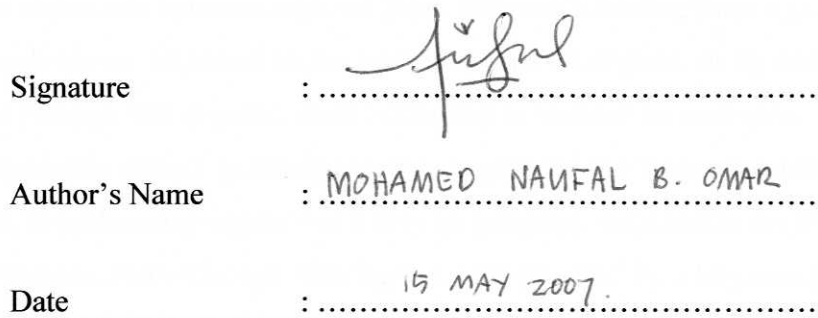 Signature :
Author's Name : MOHAMED NAUFAL B. OMAR
Date : 15 MAY 2007.